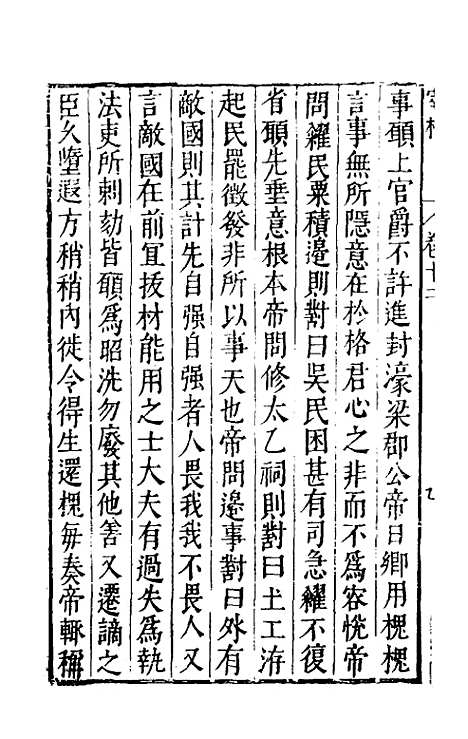 事願上官爵不許進封濠梁郡公帝日鄉用槐槐
言事無所隱意在於格君心之非而不爲容悅帝
問糴民粟積邊則對曰吳民困甚有司急糴不復
省願先垂意根本帝問修太乙祠則對曰土工洊
起民罷徵發非所以事天也帝問邊事對曰外有
敵國則其計先自强自强者人畏我我不畏人又
言敵國在前冝拔材能用之士大夫有過失爲執
法吏所刺劾皆願爲昭洗勿廢其他善又遷謫之
臣久墮遐方稍稍內徙令得生還槐每奏帝輒稱
卷十二